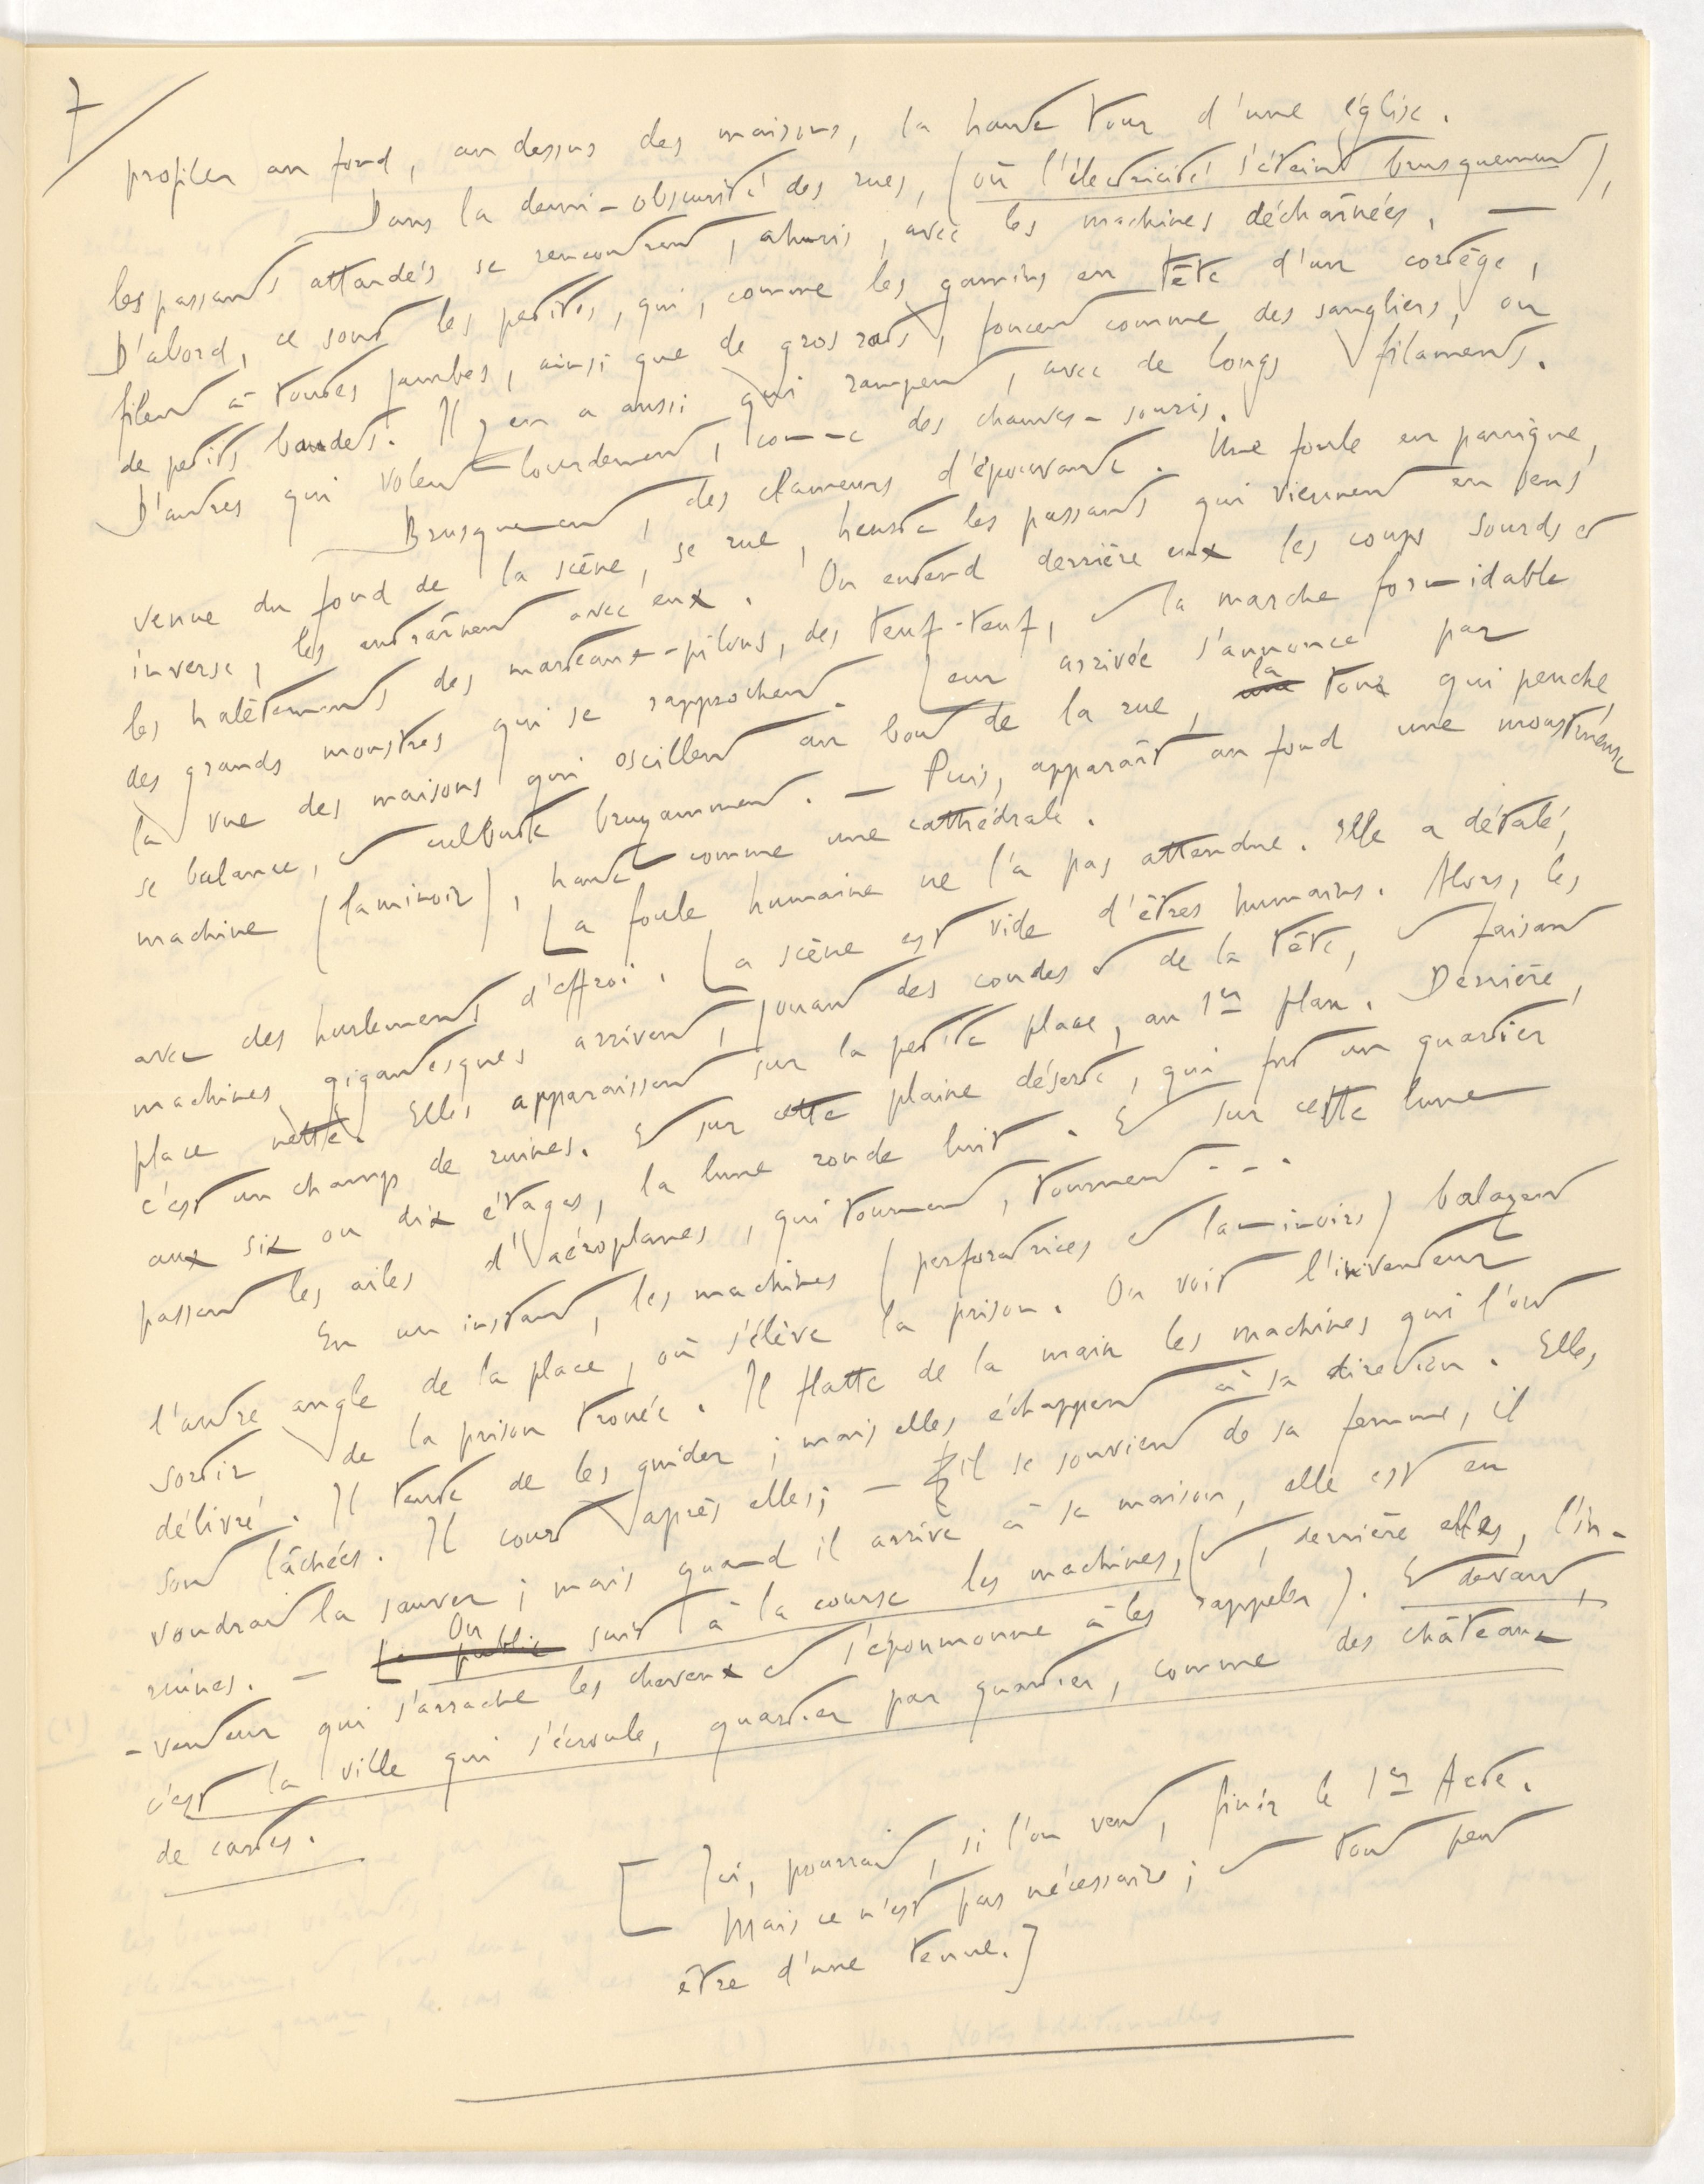 7/
profiler au fond, au dessus des maisons, la haute tour d'une église.
Dans la demi-obscurité des rues, (où l'électricité s'éteint brusquement),
les passants attardés se rencontrent, ahuris, avec les machines déchaînées. —
D'abord, ce sont les petites, qui, comme les gamins en tête d'un cortège,
filent à toutes jambes, ainsi que de gros rats, foncent comme des sangliers, ou
de petits baudets. Il y en a aussi qui rampent, avec de longs filaments.
D'autres qui volent lourdement, comme des chauves-souris.
Brusquement, des clameurs d'épouvante. Une foule en panique,
venue du fond de la scène, se rue, heurte les passants qui viennent en sens
inverse, les entraînent avec eux. On entend derrière eux les coups sourds et
les halètements des marteaux-pilons, des teuf-teuf, et la marche formidable
des grands monstres qui se rapprochent. Leur arrivée s'annonce par
la vue des maisons qui oscillent au bout de la rue, une la tour qui penche,
se balance, et culbute bruyamment. — Puis, apparaît au fond une monstrueuse
machine (laminoir), haute comme une cathédrale.
La foule humaine ne l'a pas attendue. Elle a détalé,
avec des hurlements d'effroi. La scène est vide d'êtres humains. Alors, les
machines gigantesques arrivent, jouant des coudes et de la tête, et faisant
place nette. Elles apparaissent sur la petite place, au 1er plan. Derrière,
c'est un champ de ruines. Et sur cette plaine déserte, qui fut un quartier
aux six ou dix étages, la lune ronde luit. Et sur cette lune
passent les ailes d'aéroplanes, qui tournent, tournent...
En un instant, les machines (perforatrices et laminoirs) balayent
l'autre angle de la place, où s'élève la prison. On voit l'inventeur
sortir de la prison trouée. Il flatte de la main les machines qui l'ont
délivré. Il tente de les guider; mais elles échappent à sa direction. Elles
sont lâchées. Il court après elles; — il se souvient de sa femme, il
voudrait la sauver; mais quand il arrive à sa maison, elle est en
ruines. — Le public On suit à la course les machines, (et, derrière elles, l'in-
-venteur qui s'arrache les cheveux et s'époumonne à les rappeler). Et devant,
c'est la ville qui s'écroule, quartier par quartier, comme des châteaux
de cartes.
[Ici, pourrait, si l'on veut, finir le 1er Acte.
Mais ce n'est pas nécessaire; et tout peut
être d'une tenue.]